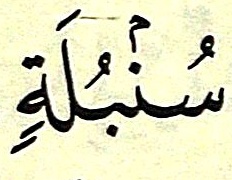 سُنۢبُلَةِ